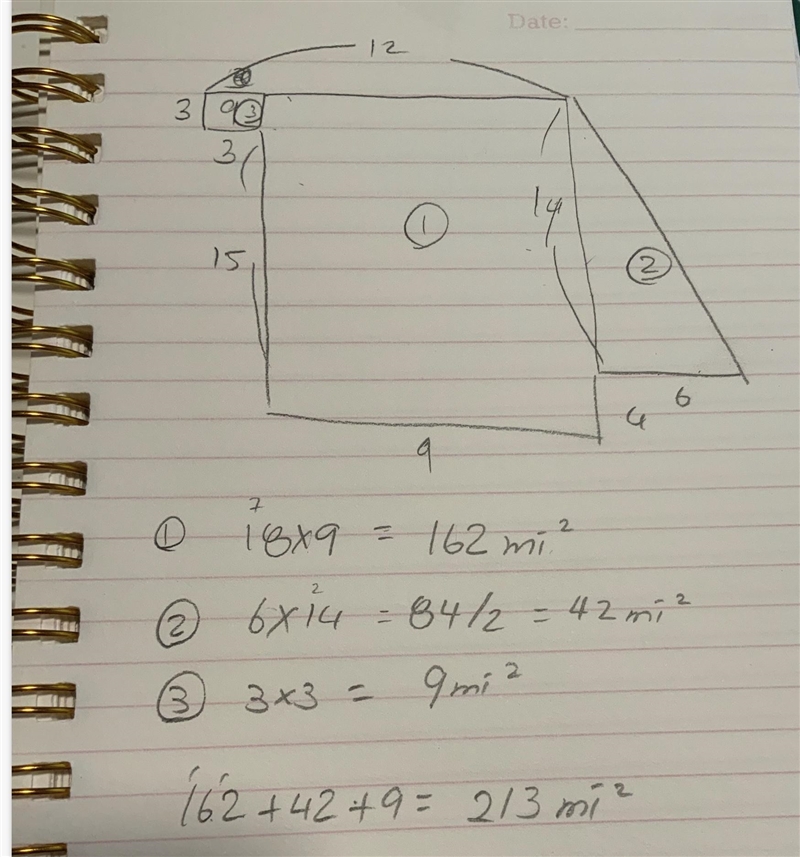 Date:
12
3 9 ③
3
14
①
②
15
6
4
9
7
① 18×9 = 162 mi²
2
② 6×14 = 84/2 = 42 mi²
③ 3×3 = 9 mi²
1 1
162 + 42 + 9 = 213 mi²